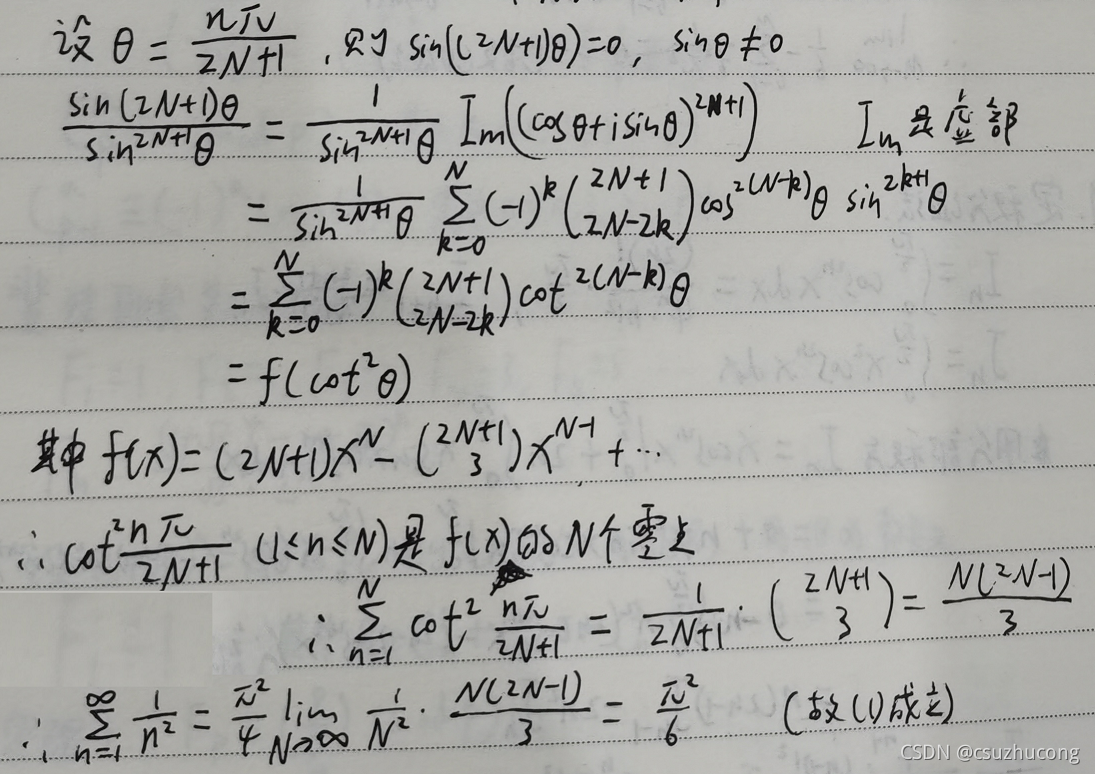 设 θ = nπ/(2N+1) ,则 sin((2N+1)θ)=0, sinθ≠0
sin(2N+1)θ / sin^{2N+1}θ = 1/sin^{2N+1}θ Im((cosθ+i sinθ)^{2N+1}) Im是虚部
= 1/sin^{2N+1}θ ∑_{k=0}^{N} (-1)^k (2N+1 \choose 2N-2k) cos^{2(N-k)}θ sin^{2k+1}θ
= ∑_{k=0}^{N} (-1)^k (2N+1 \choose 2N-2k) cot^{2(N-k)}θ
= f(cot²θ)
其中 f(x) = (2N+1)x^N - (2N+1 \choose 3) x^{N-1} + ⋯
∴ cot² nπ/(2N+1) (1≤n≤N)是 f(x)的N个零点
∴ ∑_{n=1}^{N} cot² nπ/(2N+1) = 1/(2N+1) · (2N+1 \choose 3) = N(2N-1)/3
∴ ∑_{n=1}^{∞} 1/n² = π²/4 lim_{N→∞} 1/N² · N(2N-1)/3 = π²/6 (故(1)成立)
CSDN @csuzhucong